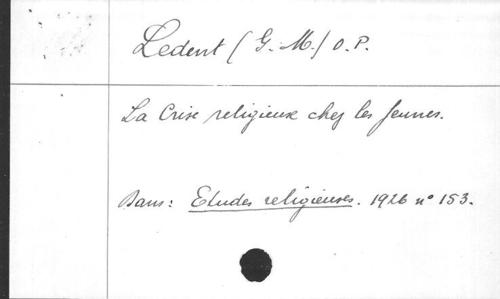 Ledent (G. M.) O.P.
La Crise religieuse chez les Jeunes.
Dans: Etudes religieuses. 1926 n° 153.